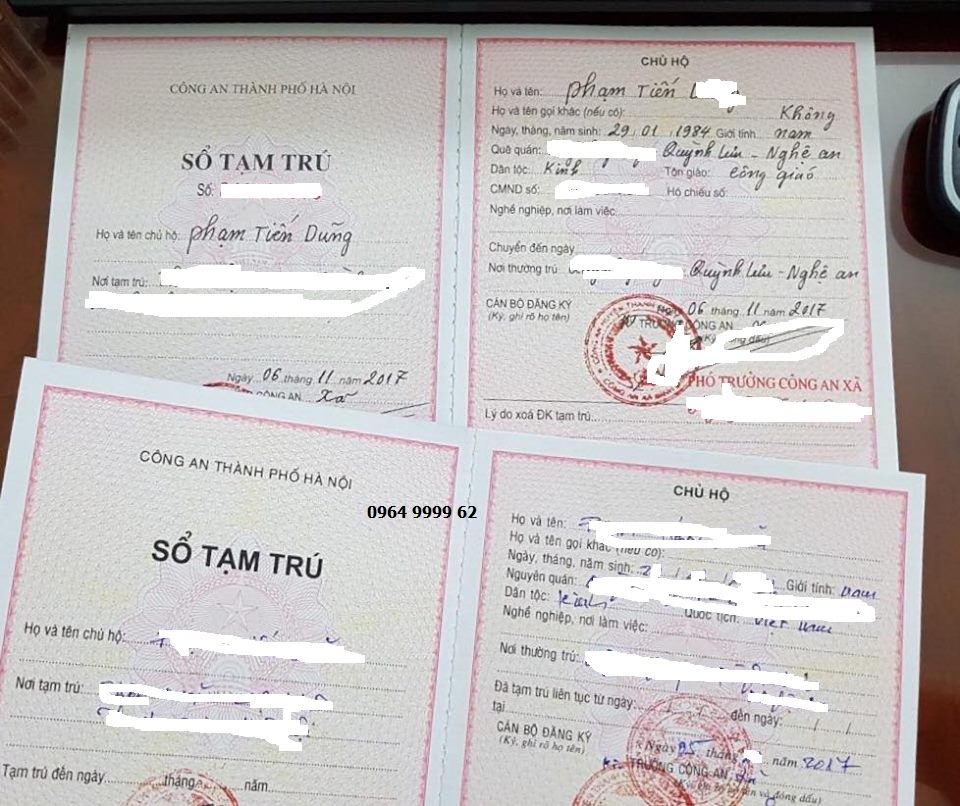 CÔNG AN THÀNH PHỐ HÀ NỘI
SỔ TẠM TRÚ
Số:
Họ và tên chủ hộ: Phạm Tiến Dũng
Nơi tạm trú:
Ngày 06 tháng 11 năm 2017
CÔNG AN Xã
CHỦ HỘ
Họ và tên: Phạm Tiến
Họ và tên gọi khác (nếu có): Không
Ngày, tháng, năm sinh: 29.01.1984 Giới tính: nam
Quê quán: Quỳnh Lưu - Nghệ an
Dân tộc: Kinh Tôn giáo: Công giáo
CMND số: Hộ chiếu số:
Nghề nghiệp, nơi làm việc:
Chuyển đến ngày
Nơi thường trú: Quỳnh Lưu - Nghệ an
CÁN BỘ ĐĂNG KÝ
(Ký, ghi rõ họ tên)
06 tháng 11 năm 2017
TRƯỞNG CÔNG AN
PHÓ TRƯỞNG CÔNG AN XÃ
Lý do xoá ĐK tạm trú:
CÔNG AN THÀNH PHỐ HÀ NỘI
SỔ TẠM TRÚ
Họ và tên chủ hộ:
Nơi tạm trú:
Tạm trú đến ngày tháng năm
0964 9999 62
CHỦ HỘ
Họ và tên:
Họ và tên gọi khác (nếu có):
Ngày, tháng, năm sinh: Giới tính: nam
Nguyên quán:
Dân tộc: Kinh Quốc tịch: Việt Nam
Nghề nghiệp, nơi làm việc:
Nơi thường trú:
Đã tạm trú liên tục từ ngày: đến ngày:
tại
CÁN BỘ ĐĂNG KÝ
(Ký, ghi rõ họ tên)
Ngày 05 tháng năm 2017
TRƯỞNG CÔNG AN
và đóng dấu)